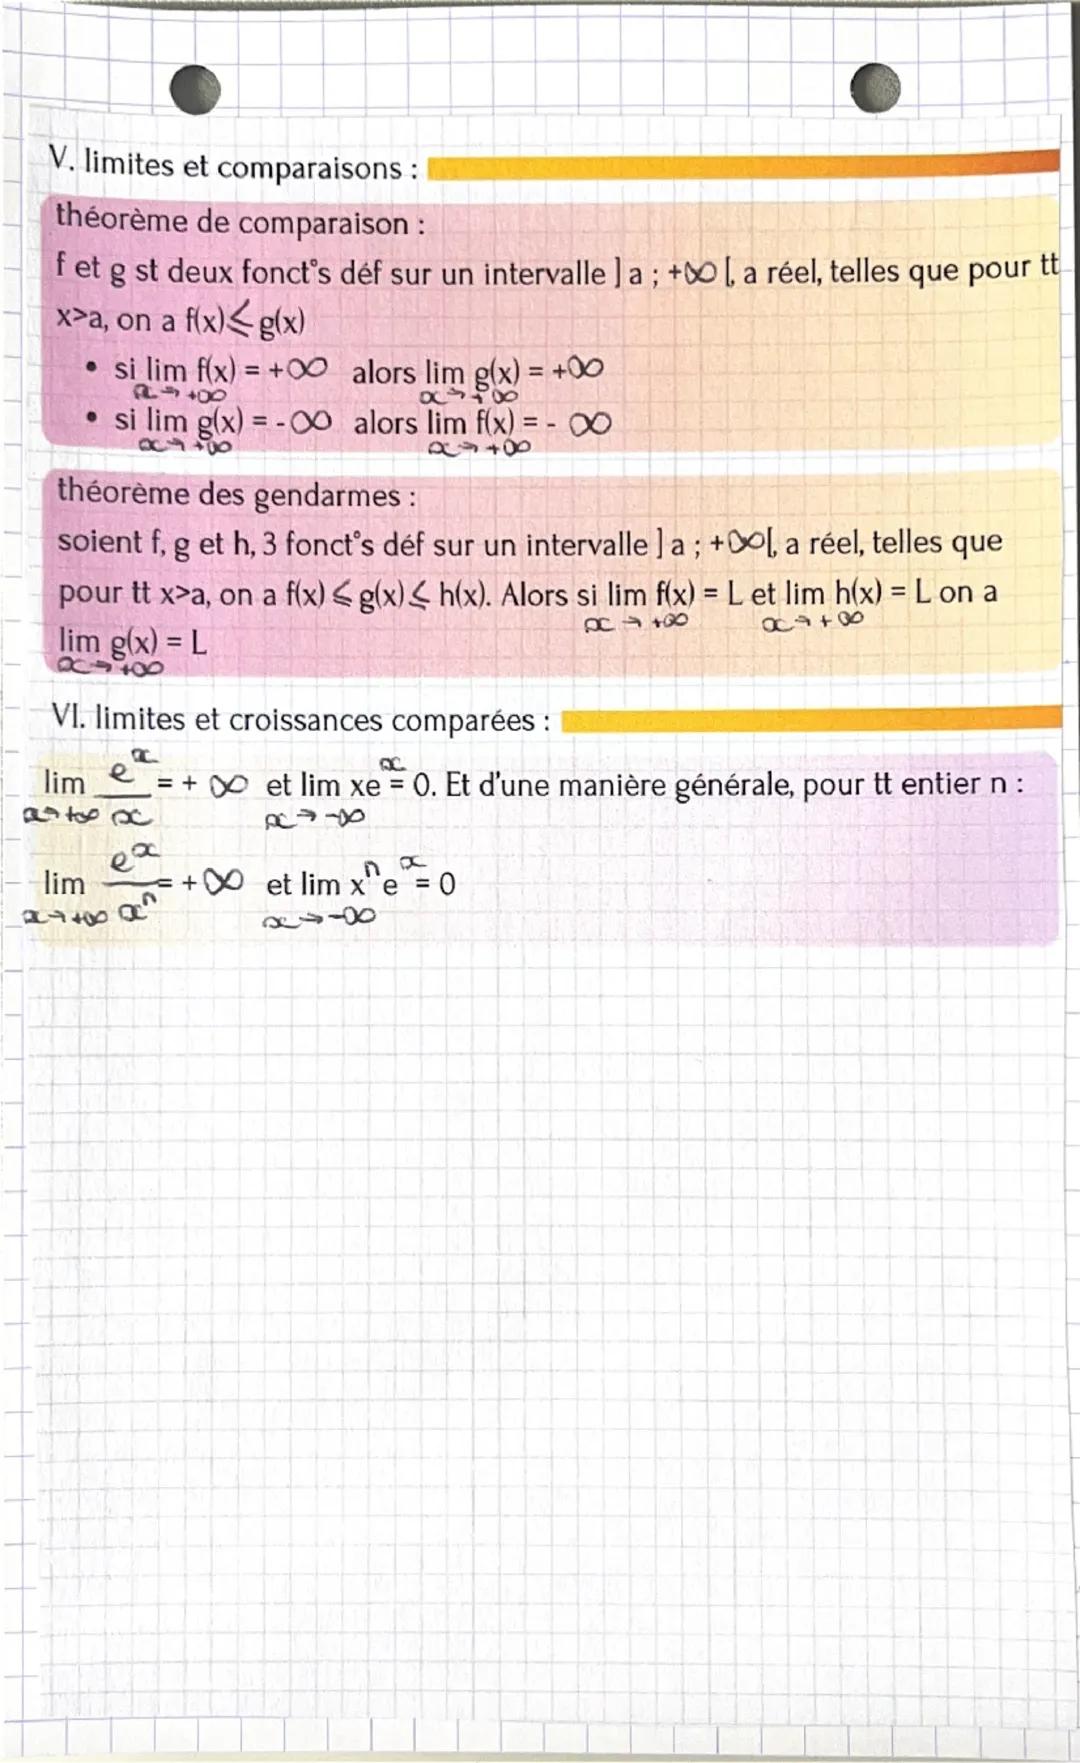 V. limites et comparaisons :
théorème de comparaison :
f et g st deux fonct°s déf sur un intervalle ] a ; +∞ [, a réel, telles que pour tt
x>a, on a f(x)⩽ g(x)
• si lim f(x) = +∞ alors lim g(x) = +∞
x→+∞ x→+∞
• si lim g(x) = -∞ alors lim f(x) = - ∞
x→+∞ x→+∞
théorème des gendarmes :
soient f, g et h, 3 fonct°s déf sur un intervalle ] a ; +∞[, a réel, telles que
pour tt x>a, on a f(x) ⩽ g(x) ⩽ h(x). Alors si lim f(x) = L et lim h(x) = L on a
x→+∞ x→+∞
lim g(x) = L
x→+∞
VI. limites et croissances comparées :
lim e^x/x = + ∞ et lim xe^x = 0. Et d'une manière générale, pour tt entier n :
x→+∞ x→-∞
lim e^x/x^n = +∞ et lim x^n e^x = 0
x→+∞ x→-∞